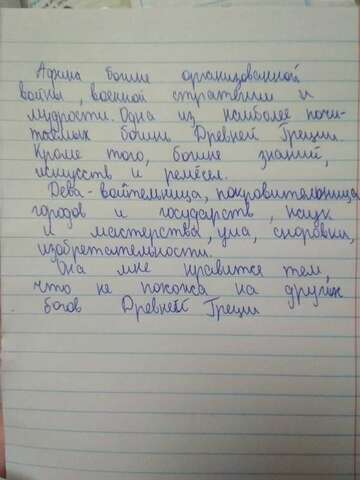 Афина богиня организованной
войны, военной стратегии и
мудрости. Одна из наиболее почи-
таемых богинь Древней Греции.
Кроме того, богиня знаний,
искусств и ремёсел.
Дева-воительница, покровительница
городов и государств, наук
и мастерства, ума, сноровки,
изобретательности.
Она мне нравится тем,
что не похожа на других
богов Древней Греции